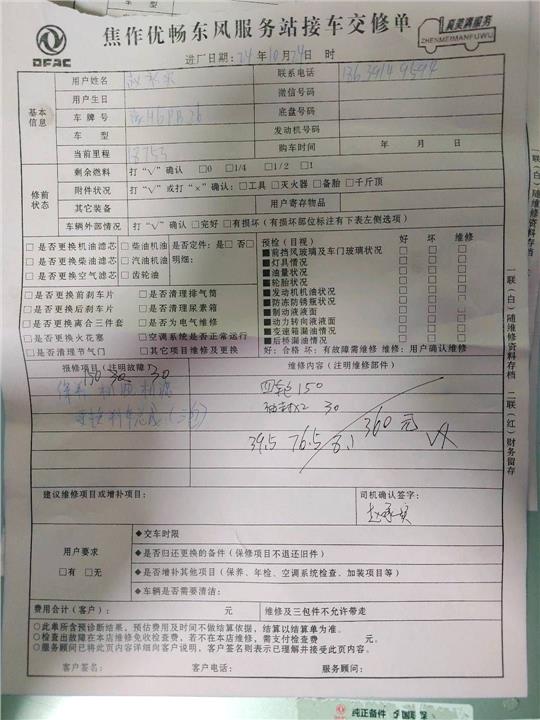 焦作优畅东风服务站接车交修单
DFAC
真美满服务
ZHENMEIMANFUWU
进厂日期：24年10月24日 时
基本信息
用户姓名 联系电话
用户生日 微信号码
车牌号 底盘号码
车型 发动机号码
当前里程 18753 购车时间 年 月 日
修前状态
剩余燃料 打“√”确认 □0 □1/4 □1/2 □1
附件状况 打“√”或打“×”确认：□工具 □灭火器 □备胎 □千斤顶
其它装备 用户寄存物品
车辆外部情况 打“√”确认 □完好 □有损坏（有损坏部位标注有下表左侧选项）
□是否更换机油滤芯 □柴油机油 是否定件：是□ 否□
□是否更换柴油滤芯 □汽油机油 明细：
□是否更换空气滤芯 □齿轮油
□是否更换前刹车片 □是否清理排气筒
□是否更换后刹车片 □是否清理尿素箱
□是否更换离合三件套 □是否为电气维修
□是否更换火花塞 □空调系统是否正常运行
□是否清理节气门 □其它项目维修及更换
预检（目视） 好 坏 维修
■前挡风玻璃及车门玻璃状况 □ □ □
■灯具情况 □ □ □
■油量状况 □ □ □
■轮胎状况 □ □ □
■发动机机油状况 □ □ □
■防冻防锈瓶状况 □ □ □
■制动液液面 □ □ □
■动力转向液液面 □ □ □
■变速箱漏油情况 □ □ □
■后桥漏油情况 □ □ □
好：合格 坏：有故障需维修 维修：用户确认维修
报修项目（注明故障） 维修内容（注明维修部件）
150 30 30
保养 机油 机滤
四轮 150
油封×2 30
39.5 76.5 8.1 360元
建议维修项目或增补项目： 司机确认签字：
用户要求
□有 □无
◆交车时限
◆是否归还更换的备件（保修项目不退还旧件）
◆是否增补其他项目（保养、年检、空调系统检查、加装项目等）
◆车辆是否需要清洁：
费用合计（客户）： 元 维修及三包件不允许带走
○此单所含预诊断结果，预估费用及时间不做结算依据，结算以结算单为准。
○检查出故障在本店维修免收检查费，若不在本店维修，需支付检查费 元。
○服务顾问已将此页内容详细向客户说明，客户签名则表示已理解并接受此页内容。
客户签名： 客户电话： 服务顾问：
一联（白）随维修资料存档 二联（红）财务留存
纯正备件